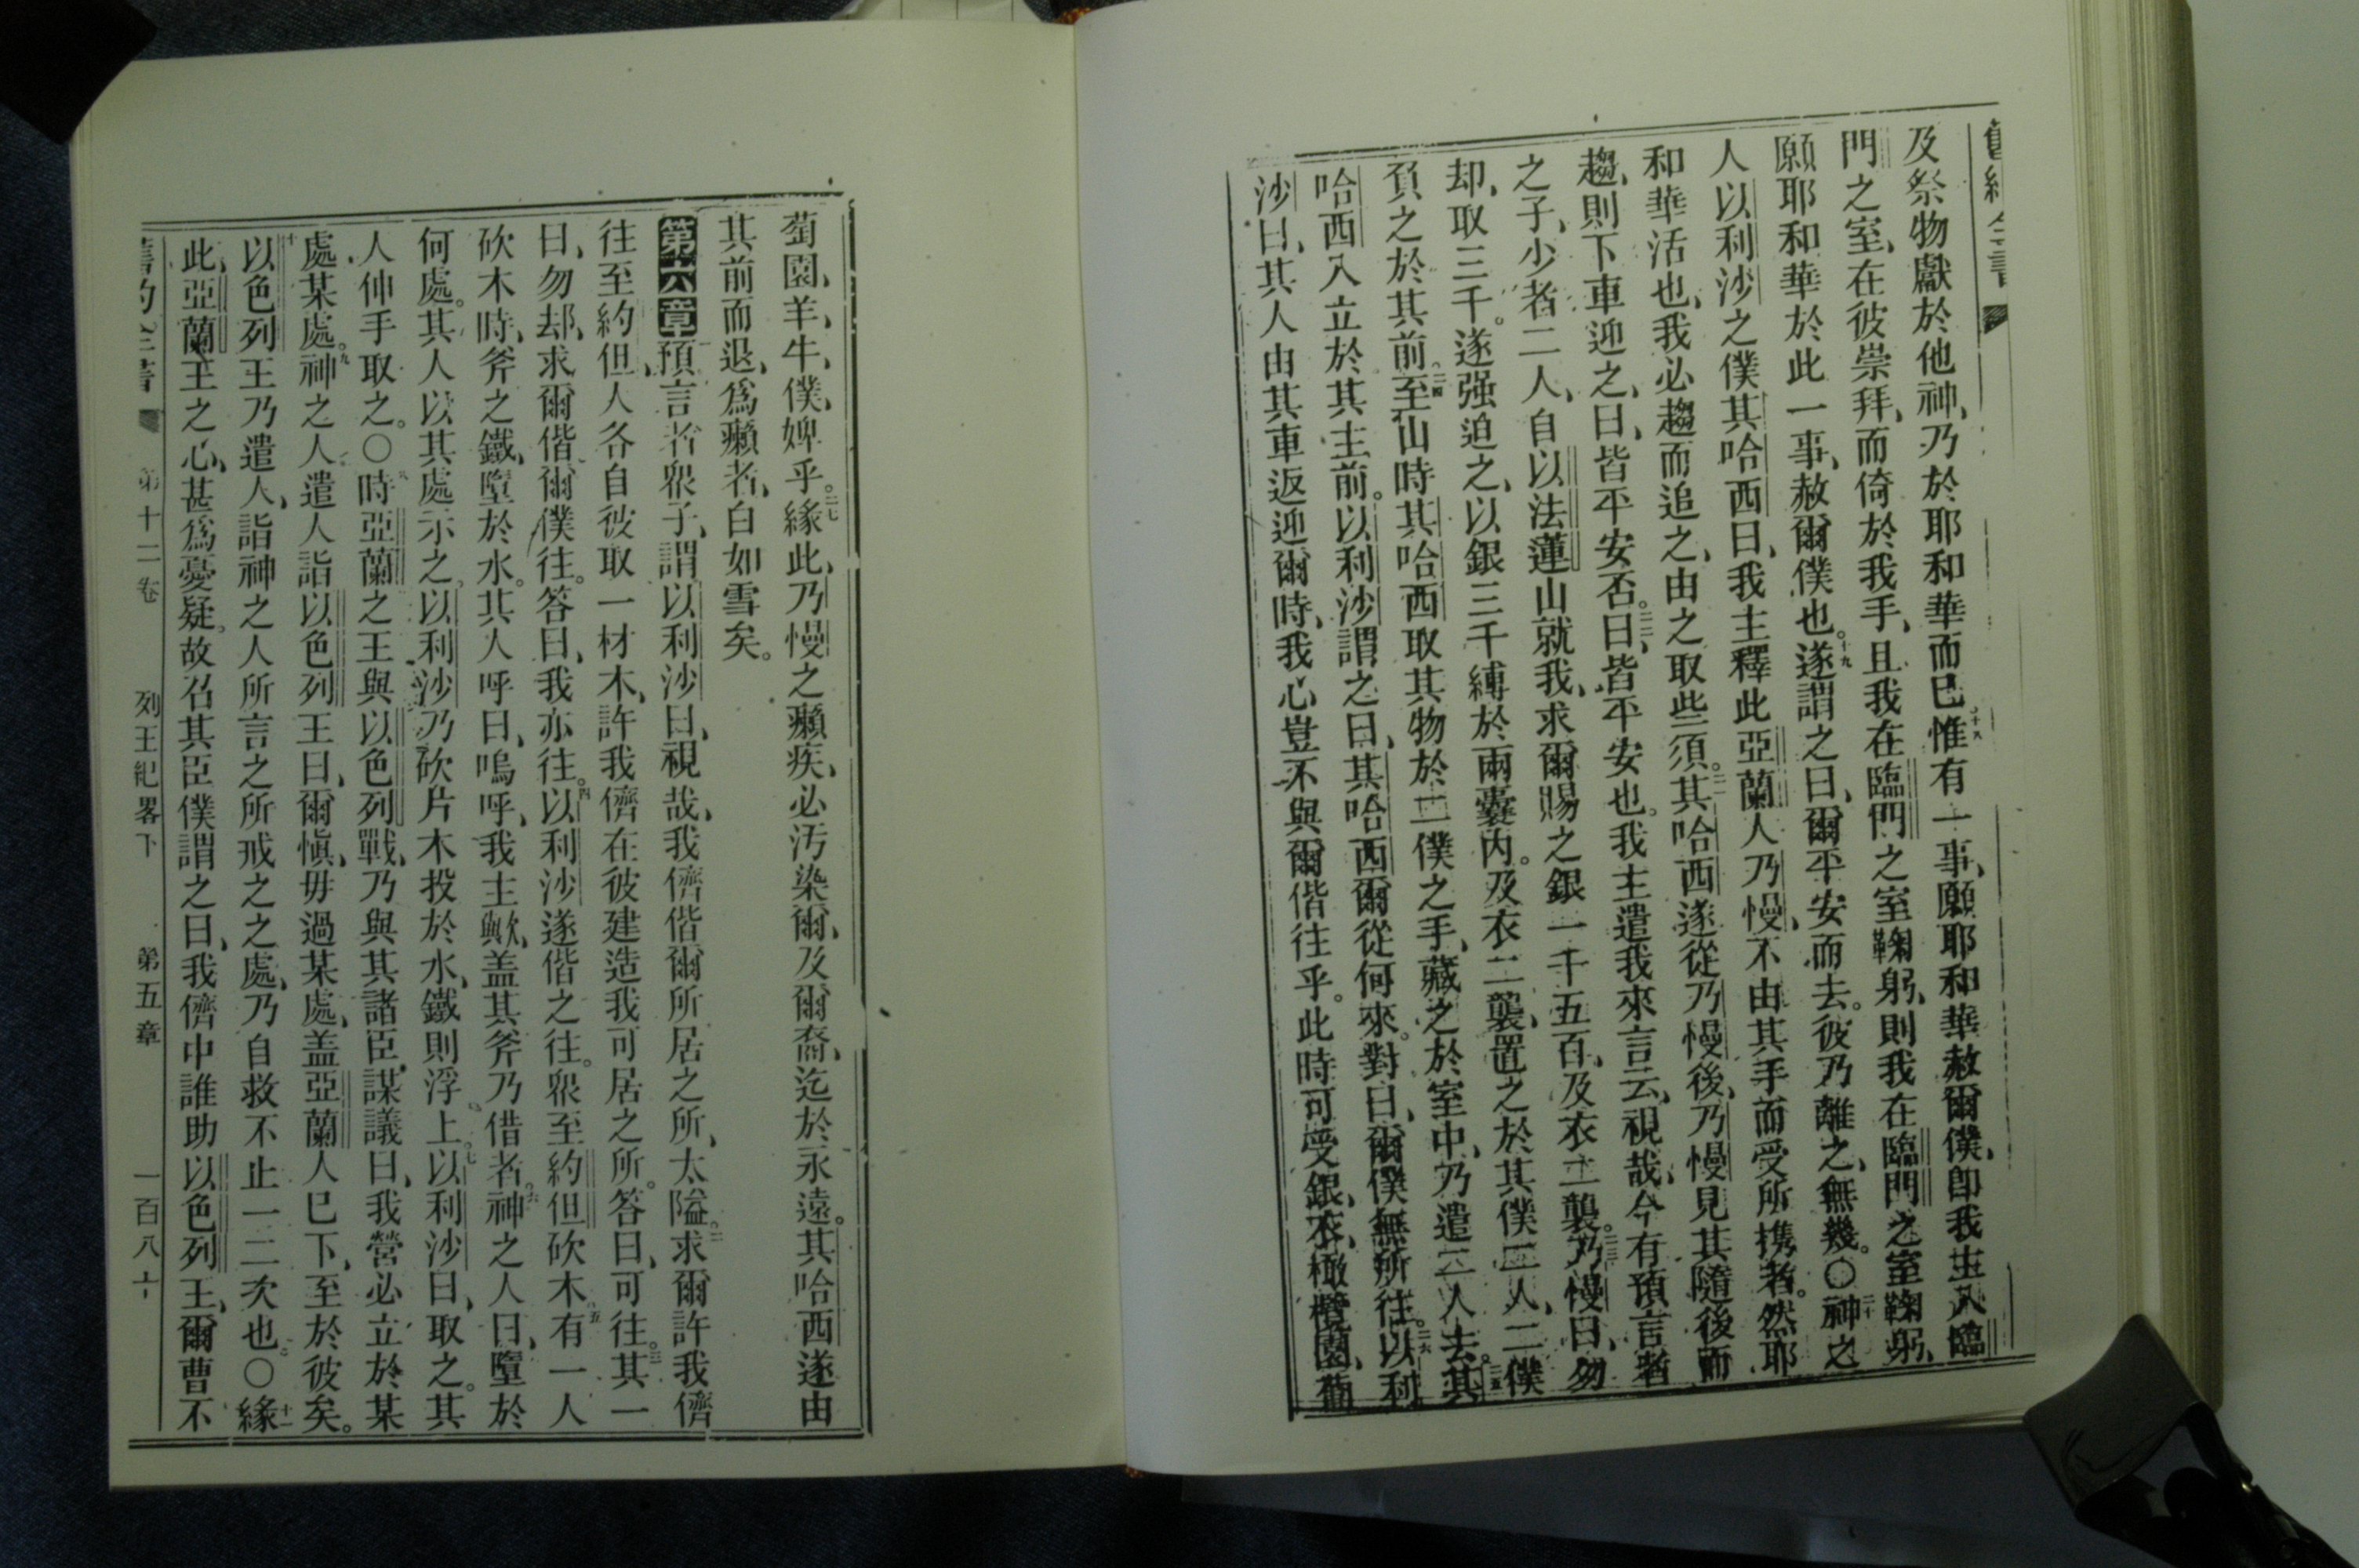 及祭物獻於他神、乃於耶和華而已、十八惟有一事、願耶和華赦爾僕、卽我主入臨
門之室、在彼崇拜、而倚於我手、且我在臨門之室鞠躬、則我在臨門之室鞠躬、
願耶和華於此一事、赦爾僕也。十九遂謂之曰、爾平安而去。彼乃離之、無幾。〇二十神之
人以利沙之僕其哈西曰、我主釋此亞蘭人乃慢、不由其手而受所携者。然耶
和華活也、我必趨而追之、由之取些須。二一其哈西遂從乃慢後、乃慢見其隨後而
趨、則下車迎之、曰、皆平安否。二二曰、皆平安也。我主遣我來言云、視哉、今有預言者
之子、少者二人、自以法蓮山就我、求爾賜之銀一千五百、及衣二襲。二三乃慢曰、勿
却、取三千。遂强迫之、以銀三千縛於兩囊內。及衣二襲、置之於其僕二人、二僕
負之於其前。二四至山時其哈西取其物於二僕之手、藏之於室中、乃遣二人去。二五其
哈西入立於其主前。以利沙謂之曰、其哈西爾從何來。對曰、爾僕無所往。二六以利
沙曰、其人由其車返迎爾時、我心豈不與爾偕往乎。此時可受銀、衣、橄欖園、葡
萄園、羊、牛、僕、婢乎。二七緣此、乃慢之癩疾、必汚染爾、及爾裔、迄於永遠。其哈西遂由
其前而退、爲癩者、白如雪矣。
第六章預言者眾子、謂以利沙曰、視哉、我儕偕爾所居之所、太隘。二求爾許我儕
往至約但、人各自彼取一材木、許我儕在彼建造我可居之所。答曰、可往。三其一
曰、勿却、求爾偕爾僕往。答曰、我亦往。四以利沙遂偕之往。眾至約但砍木。五有一人
砍木時、斧之鐵、墮於水。其人呼曰、嗚呼、我主歟、盖其斧乃借者。六神之人曰、墮於
何處。其人以其處示之。以利沙乃砍片木投於水、鐵則浮上。七以利沙曰、取之。其
人伸手取之。〇八時亞蘭之王與以色列戰、乃與其諸臣謀議曰、我營必立於某
處、某處。九神之人遣人詣以色列王曰、爾愼、毋過某處、盖亞蘭人已下、至於彼矣。
十以色列王乃遣人、詣神之人所言之所戒之之處、乃自救不止一二次也。〇十一緣
此、亞蘭王之心、甚爲憂疑。故召其臣僕謂之曰、我儕中誰助以色列王、爾曹不
舊約全書 第十二卷 列王紀畧下 第五章 一百八十